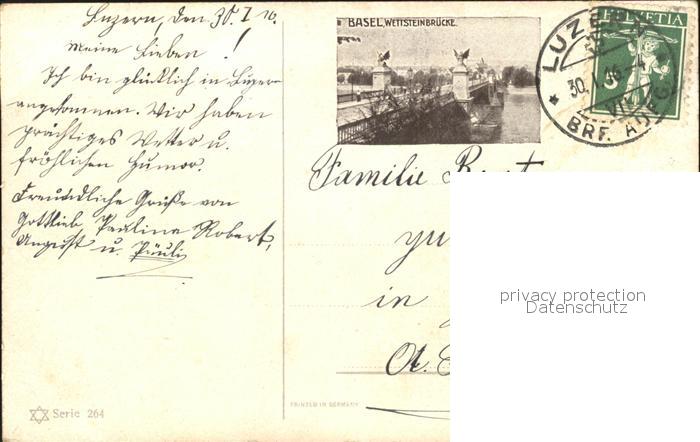 Luzern, den 30. I 16.
Meine Lieben!
Ich bin glücklich in Luzern
angekommen. Wir haben
prächtiges Wetter u.
fröhlichen Humor.
Freundliche Grüße von
Gottlieb, Paulina Robert,
August u. Päuli
BASEL, WETTSTEINBRÜCKE.
HELVETIA
LUZERN
30. I. 16. - 4
BRF. AUFG.
Familie
in
privacy protection
Datenschutz
PRINTED IN GERMANY
Serie 264